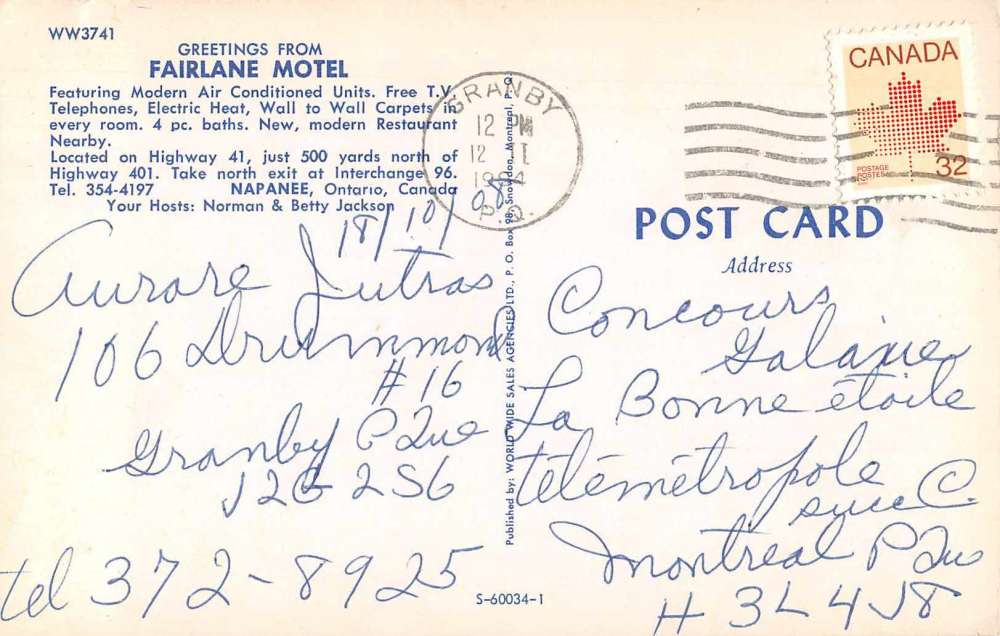 WW3741
GREETINGS FROM
FAIRLANE MOTEL
Featuring Modern Air Conditioned Units. Free T.V.
Telephones, Electric Heat, Wall to Wall Carpets in
every room. 4 pc. baths. New, modern Restaurant
Nearby.
Located on Highway 41, just 500 yards north of
Highway 401. Take north exit at Interchange 96.
Tel. 354-4197 NAPANEE, Ontario, Canada
Your Hosts: Norman & Betty Jackson
Aurore Jutras
106 Drummond
#16
Granby P Que
J2G 2S6
tel 372-8925
S-60034-1
Published by: WORLD WIDE SALES AGENCIES LTD., P. O. Box 98, Snowdon, Montreal, P. Q.
GRANBY
12 PM
12 I
P.Q.
CANADA
POSTAGE
POSTES
32
POST CARD
Address
Concours
Galaxie
La Bonne étoile
télémétropole
succ C.
Montreal P Que
H 3L 4J8